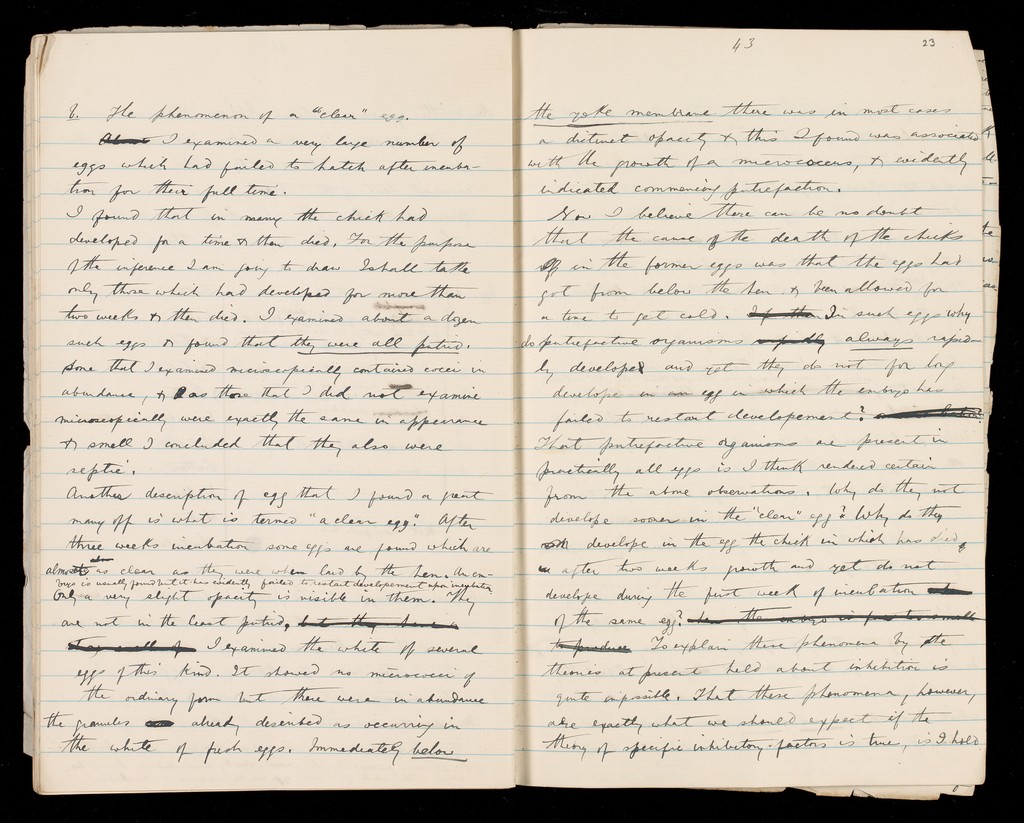 b. The phenomenon of a "clear" egg.
I examined a very large number of
eggs which had failed to hatch after incuba-
tion for their full time.
I found that in many the chick had
developed for a time & then died. For the purpose
of the inference I am going to draw I shall take
only those which had developed for more than
two weeks & then died. I examined about a dozen
such eggs & found that they were all putrid.
Some that I examined microscopically contained cocci in
abundance, & as those that I did not examine
microscopically were exactly the same in appearance
& smell I concluded that they also were
septic.
Another description of egg that I found a great
many off is what is termed "a clear egg". After
three weeks incubation some eggs are found which are
almost as clear as they were when laid by the hen. An em-
bryo is usually found but it has evidently failed to restart developement upon incubation
Only a very slight opacity is visible in them. They
are not in the least putrid, but they have a
I examined the white of several
eggs of this kind. It showed no micrococci of
the ordinary form but there were in abundance
the granules already described as occurring in
the white of fresh eggs. Immediately below
43
23
the yolk membrane there was in most cases
a distinct opacity & this I found was associated
with the growth of a micrococcus, & evidently
indicated commencing putrefaction.
Now I believe there can be no doubt
that the cause of the death of the chicks
in the former eggs was that the eggs had
got from below the hen & been allowed for
a time to get cold. In such eggs why
do putrefactive organisms rapidly always rapid-
ly develope and yet they do not for long
develope in an egg in which the embryo has
failed to restart developement?
That putrefactive organisms are present in
practically all eggs is I think rendered certain
from the above observations. Why do they not
develope sooner in the "clear" egg? Why do they
develope in the egg the chick in which has died
after two weeks growth and yet do not
develope during the first week of incubation
of the same egg? how the embryo is far too small
to produce To explain these phenomena by the
theories at present held about inhibition is
quite impossible. That these phenomena, however,
are exactly what we should expect if the
theory of specific inhibitory factors is true, is I hold